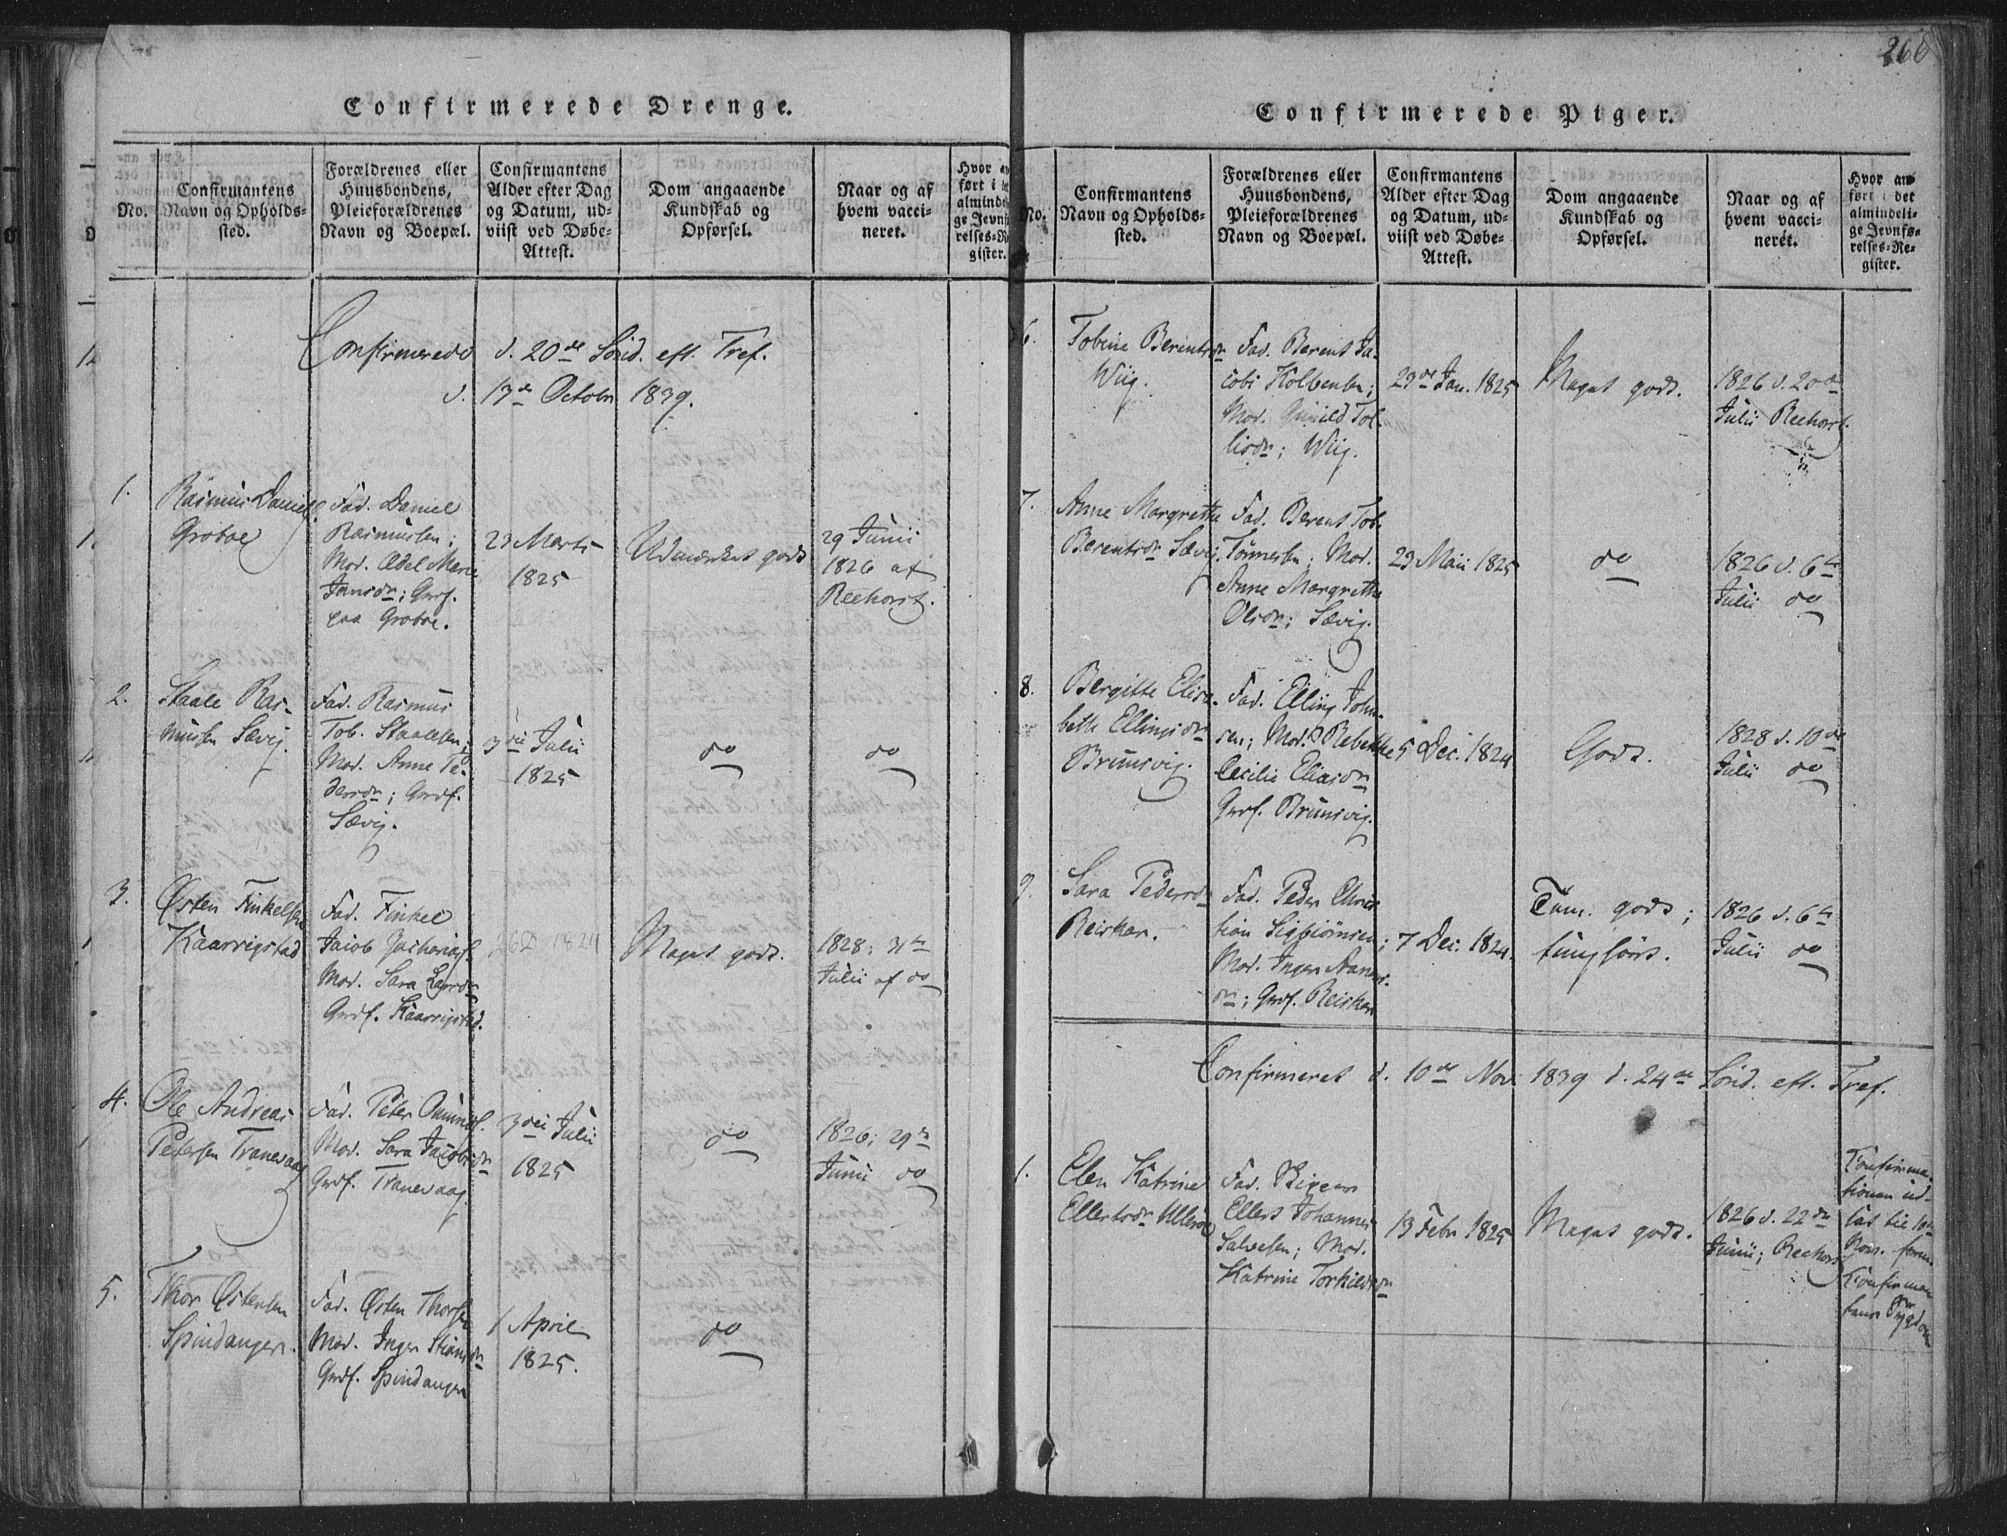 Confirmerede Drenge.
No.
Confirmantens
Navn og Opholds-
sted.
Forældrenes eller
Huusbondens,
Pleieforældrenes
Navn og Boepæl.
Confirmantens
Alder efter Dag
og Datum, ud-
viist ved Døbe-
Attest.
Dom angaaende
Kundskab og
Opførsel.
Naar og af
hvem vacci-
neret.
Hvor an
ført i
almindeli
ge Jevnfø
relses-Re
gister.
Confirmerede d. 20de Sønd. eft. Tref.
d. 13de Octobr 1839.
1.
Rasmus Daniels.
Groboe
Fad. Daniel
Rasmussen;
Mod. Adel Marie
Jansdr; Grdf.
paa Groboe.
23 Marts
1825
Udmærket godt
29 Junii
1826 af
Reehorst.
2.
Staale Ras-
mussen Sævig.
Fad. Rasmus
Tob. Staalesen;
Mod. Anne Pe-
dersdr; Grdf.
Sævig.
3die Julii
1825
do
do
3.
Østen Finkelsen
Kaarrigstad
Fad. Finkel
Jacob Zachariass.
Mod. Sara Larsdr
Grdf. Kaarrigstad.
26 D 1824
Meget godt.
1828; 31te
Julii af do
4.
Ole Andreas
Petersen Tranevaag
Fad. Peter
Mod. Sara Jacobsdr
Grdf. Tranevaag.
3die Julii
1825
do
1826; 29de
Junii do
5.
Thor Østensen
Spindanger.
Fad. Østen Thorsen
Mod. Inger Stiansdr
Grdf. Spindanger
1 April
1825.
do
266
Confirmerede Piger.
No.
Confirmantens
Navn og Opholds-
sted.
Forældrenes eller
Huusbondens,
Pleieforældrenes
Navn og Boepæl.
Confirmantens
Alder efter Dag
og Datum, ud-
viist ved Døbe-
Attest.
Dom angaaende
Kundskab og
Opførsel.
Naar og af
hvem vacci-
neret.
Hvor an-
ført i det
almindeli-
ge Jevnfø-
relses-Re-
gister.
6.
Tobine Berentsdr
Wiig.
Fad. Berent Ja-
cobs Kolbensen;
Mod. Gunild Tol-
lisdr; Wiig.
23de Jan. 1825
Meget godt.
1826 d. 20de
Julii Reehorst.
7.
Anne Margrethe
Berentsdr Sævig.
Fad. Berent Tob.
Tønnesen; Mod.
Anne Margrethe
Olsdr; Sævig.
23 Maii 1825
do
1826 d. 6te
Julii do
8.
Bergitte Elisa-
beth Ellingsdr
Brunsvig.
Fad. Elling John-
sen; Mod. Rebekke
Cecilie Eliasdr
Grdf. Brunsvig.
5 Dec. 1824
Godt.
1828 d. 10de
Julii do
9.
Sara Pedersdr
Reisker.
Fad. Peder Chris-
tian Sigbiørnsen;
Mod. Inger Aanens-
dr; Grdf. Reisker
7 Dec. 1824.
Tem. godt;
tungførs.
1826 d. 6te
Julii do
Confirmeret d. 10de Nov. 1839 d. 24de Sønd. eft. Tref.
1.
Elen Katrine
Ellertsdr Ullerøe
Fad.
Ellert Johannes
Salvesen; Mod.
Katrine Torkildsdr
13 Febr 1825
Meget godt.
1826 d. 22de
Junii; Reehorst
Confirma-
tionen ud-
sat til 10de
Nov.
Confirman-
tens Sygdom